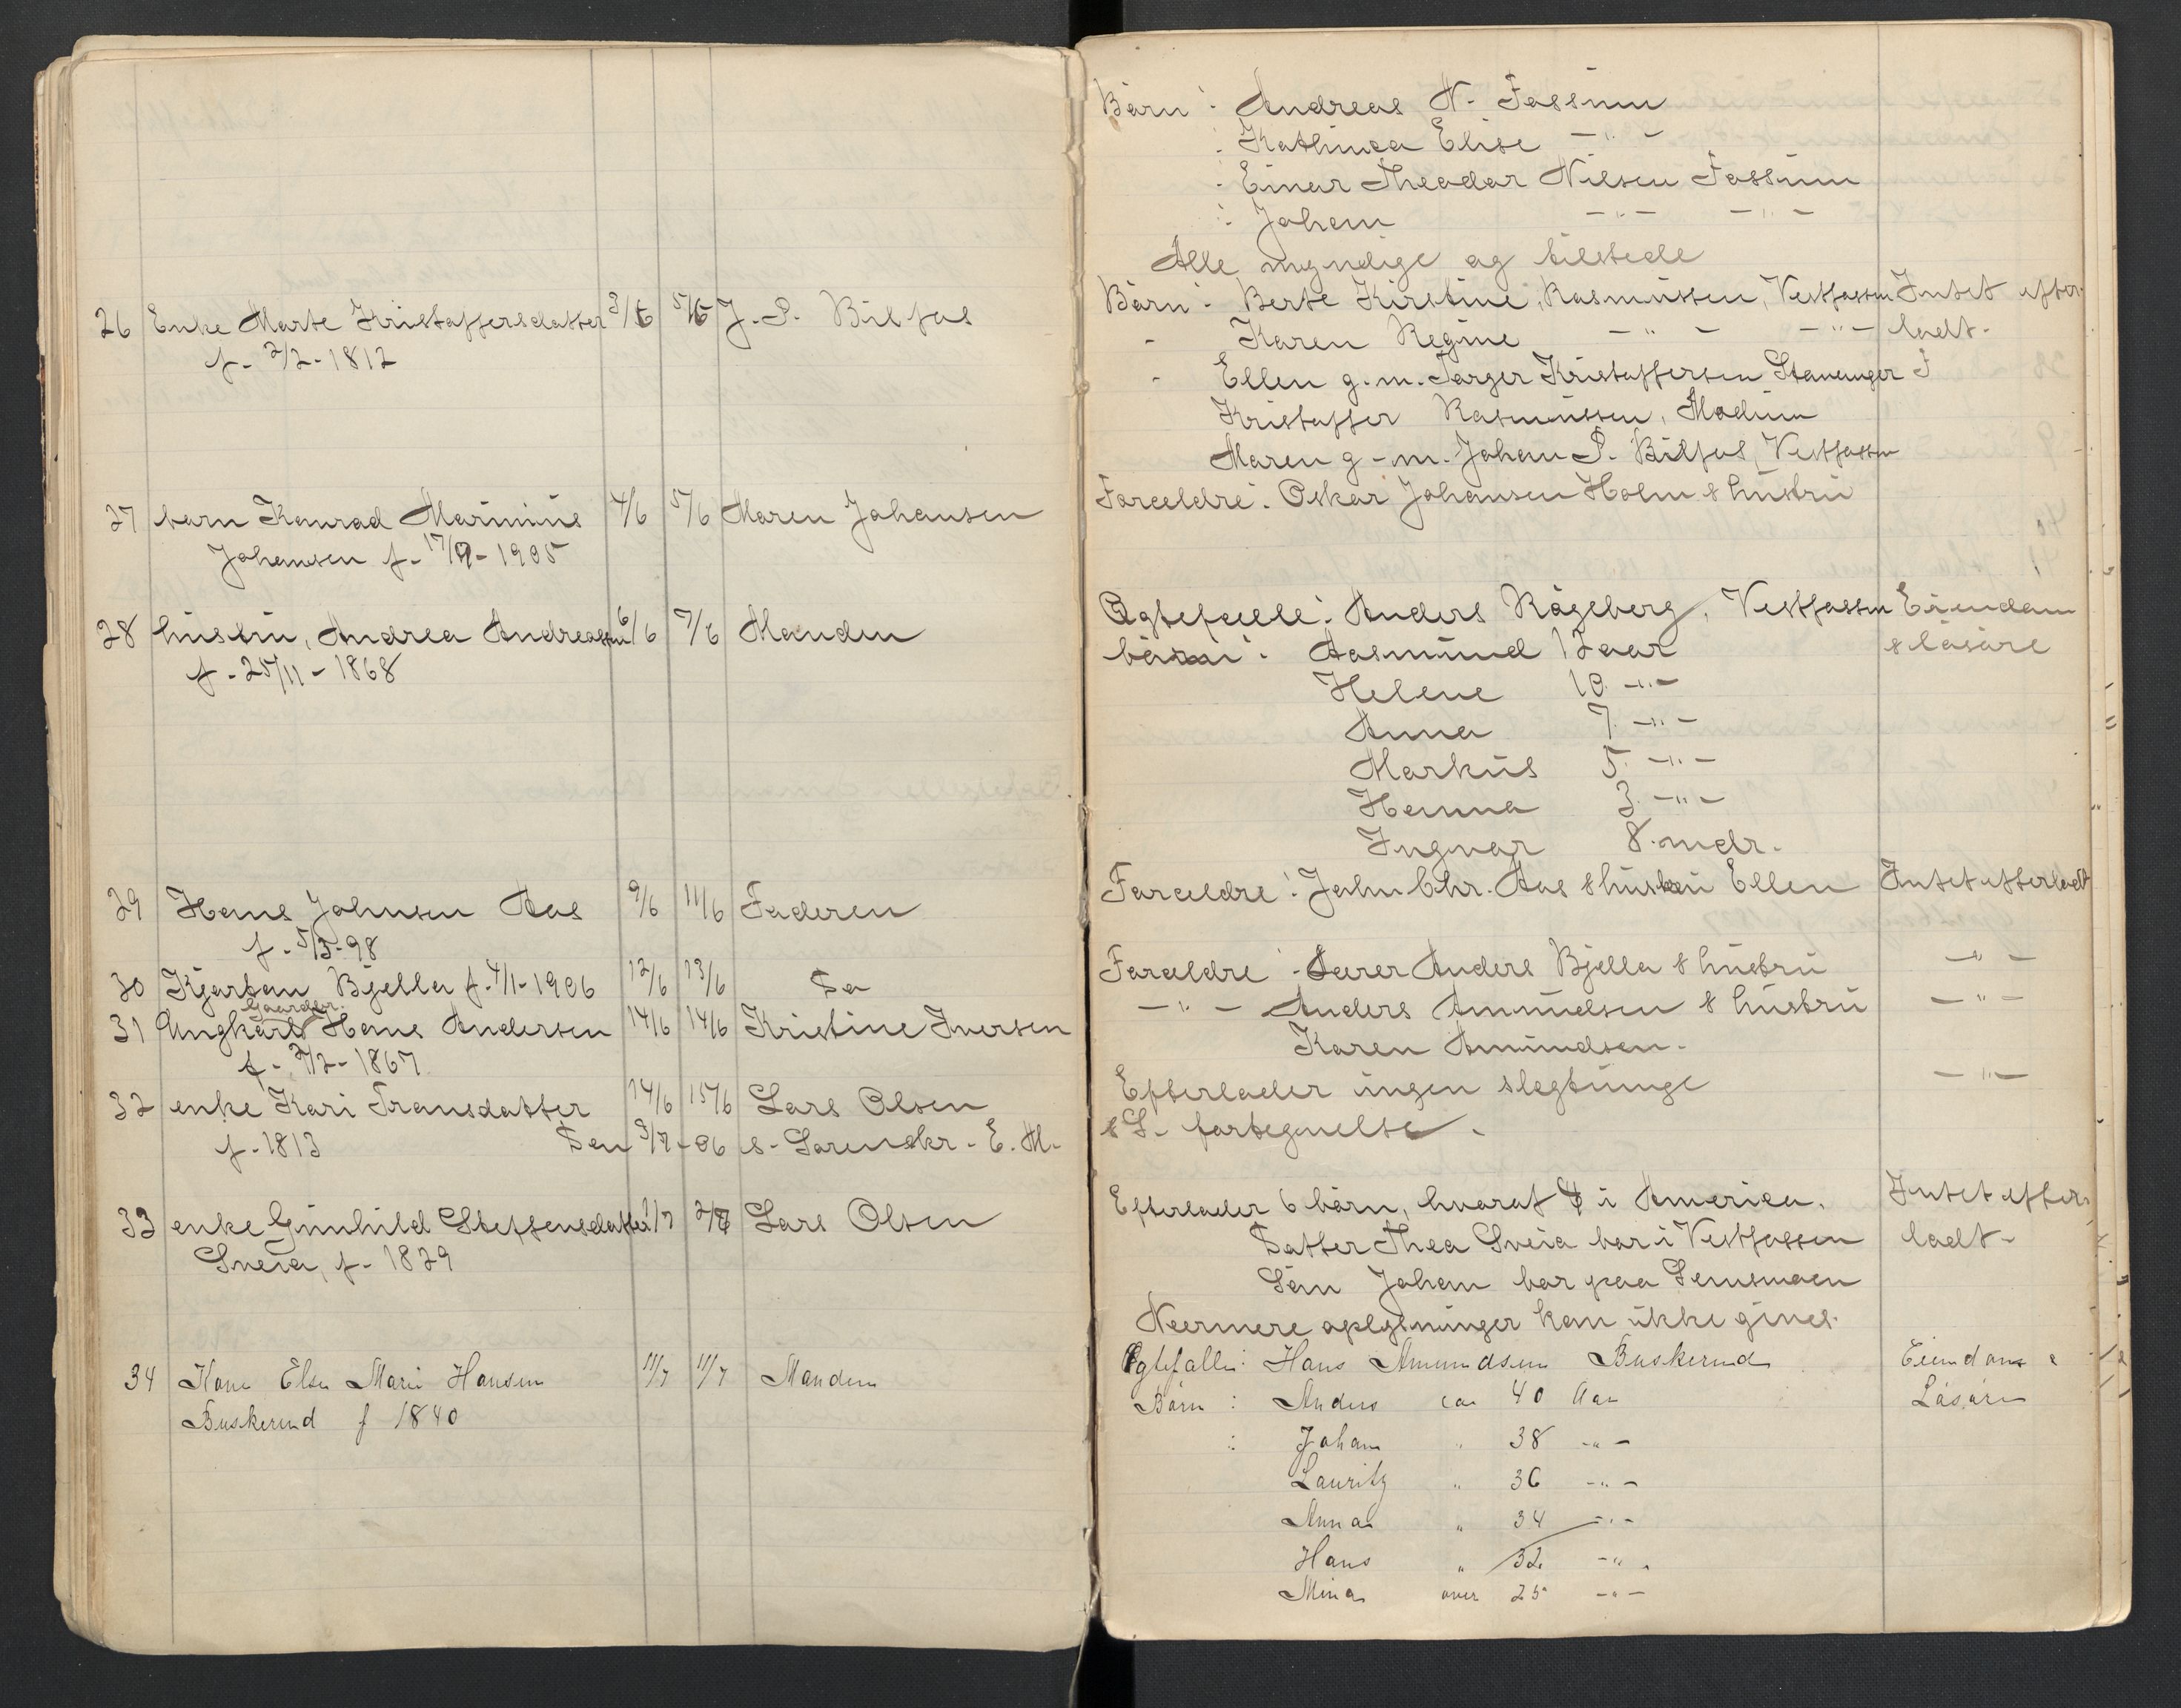 26 Enke Marte Kristoffersdatter 3/6 5/6 J. P. Bilfos
f. 2/2-1812
27 barn Konrad Marinius 4/6 5/6 Maren Johansen
Johansen f. 17/9-1905
28 hustru, Andrea Andreassen 6/6 7/6 Manden
f. 25/11-1868
29 Hans Johnsen Aas 9/6 11/6 Faderen
f. 5/3-98
30 Kjartan Bjella f. 4/1-1906 12/6 13/6 Do
Gaarder
31 Ungkarl Hans Andersen 14/6 14/6 Kristine Iversen
f. 2/2-1867
32 enke Kari Fransdatter 14/6 15/6 Lars Olsen
f. 1813 Den 3/7-06 s. Sorenskr. E. M.
33 enke Gunhild Steffensdatter 1/7 2/7 Lars Olsen
Sveia, f. 1829
34 Kone Else Marie Hansen 11/7 11/7 Manden
Buskerud f 1840
Börn: Andreas N. Fossum
: Kathinca Elise -"-
: Einar Theodor Nilsen Fossum
: Johan -"- -"-
Alle myndige og tilstede
Börn: Berte Kirstine Rasmussen, Vestfossen Intet efter-
- Karen Regine -"- -"- ladt.
- Ellen g. m. Torger Kristoffersen Stavanger
Kristoffer Rasmussen, Modum
Maren g. m. Johan P. Bilfos, Vestfossen
Forældre: Oskar Johansen Holm & hustru
Ægtefælle: Anders Kågeberg, Vestfossen Eiendom
börn: Aasmund 12 aar & lösöre
Helene 10 -"-
Anna 7 -"-
Markus 5 -"-
Hanna 3 -"-
Ingvar 8 mdr.
Forældre: John Chr. Aas & hustru Ellen Intet efterladt
Forældre: Lærer Anders Bjella & hustru -"-
-"- Anders Amundsen & hustru -"-
Karen Amundsen.
Efterlader ingen slegtninge -"-
& L. fortegnelse.
Efterlader 6 börn, hvoraf 4 i America. Intet efter-
Datter Thea Sveia bor i Vestfossen ladt.
Sön Johan bor paa Semsmoen
Nærmere oplysninger kan ikke gives.
Ægtefælle: Hans Amundsen Buskerud Eiendom &
Börn: Anders ca 40 Aar Lösöre
: Johan " 38 -"-
Lauritz " 36 -"-
Anna " 34 -"-
Hans " 32 -"-
Mina over 25 -"-